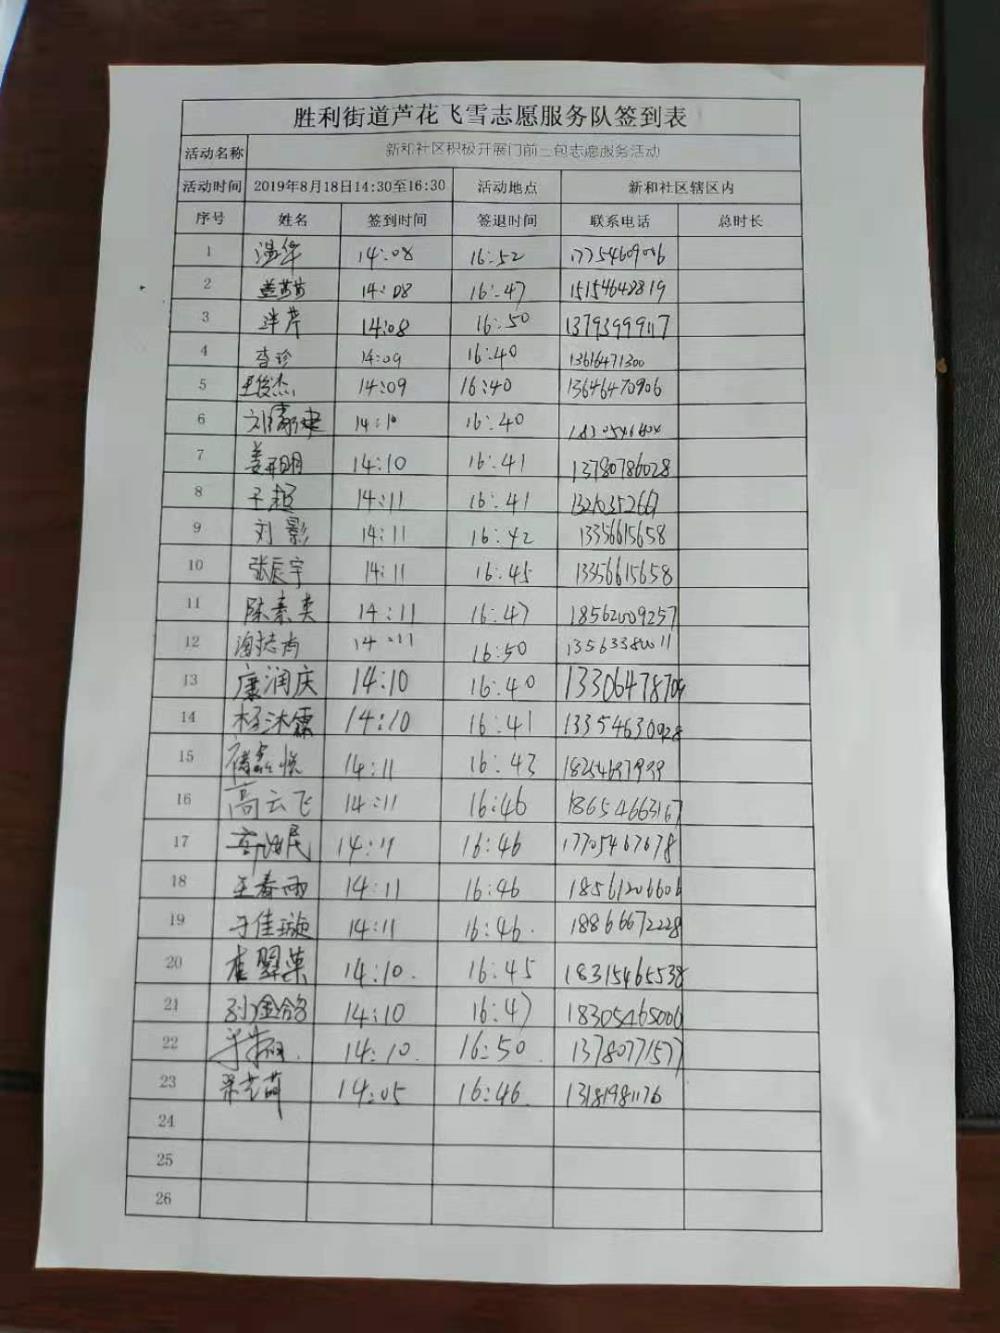 胜利街道芦花飞雪志愿服务队签到表
活动名称 新和社区积极开展门前三包志愿服务活动
活动时间 2019年8月18日14:30至16:30 活动地点 新和社区辖区内
序号 姓名 签到时间 签退时间 联系电话 总时长
1 温华 14:08 16:52 17754609006
2 14:08 16:47 15154648819
3 14:08 16:50 13793999117
4 李珍 14:09 16:40 13616471300
5 王俊杰 14:09 16:40 13646470906
6 14:10 16:40
7 姜开明 14:10 16:41 13780786028
8 于超 14:11 16:41 13210352661
9 刘影 14:11 16:42 13356615658
10 张辰宇 14:11 16:45 13356615658
11 陈素英 14:11 16:47 18562009257
12 14:11 16:50 13563380011
13 廉润庆 14:10 16:40 13306478709
14 杨沐霖 14:10 16:41 13354630928
15 14:11 16:43
16 高云飞 14:11 16:46 18654663167
17 14:11 16:46 17705467678
18 王春雨 14:11 16:46 18561206606
19 于佳璇 14:11 16:46 18866672228
20 崔翠荣 14:10 16:45 18315465538
21 孙金铭 14:10 16:47 18305465006
22 14:10 16:50 13780771577
23 梁艺萌 14:05 16:46 13181981176
24
25
26